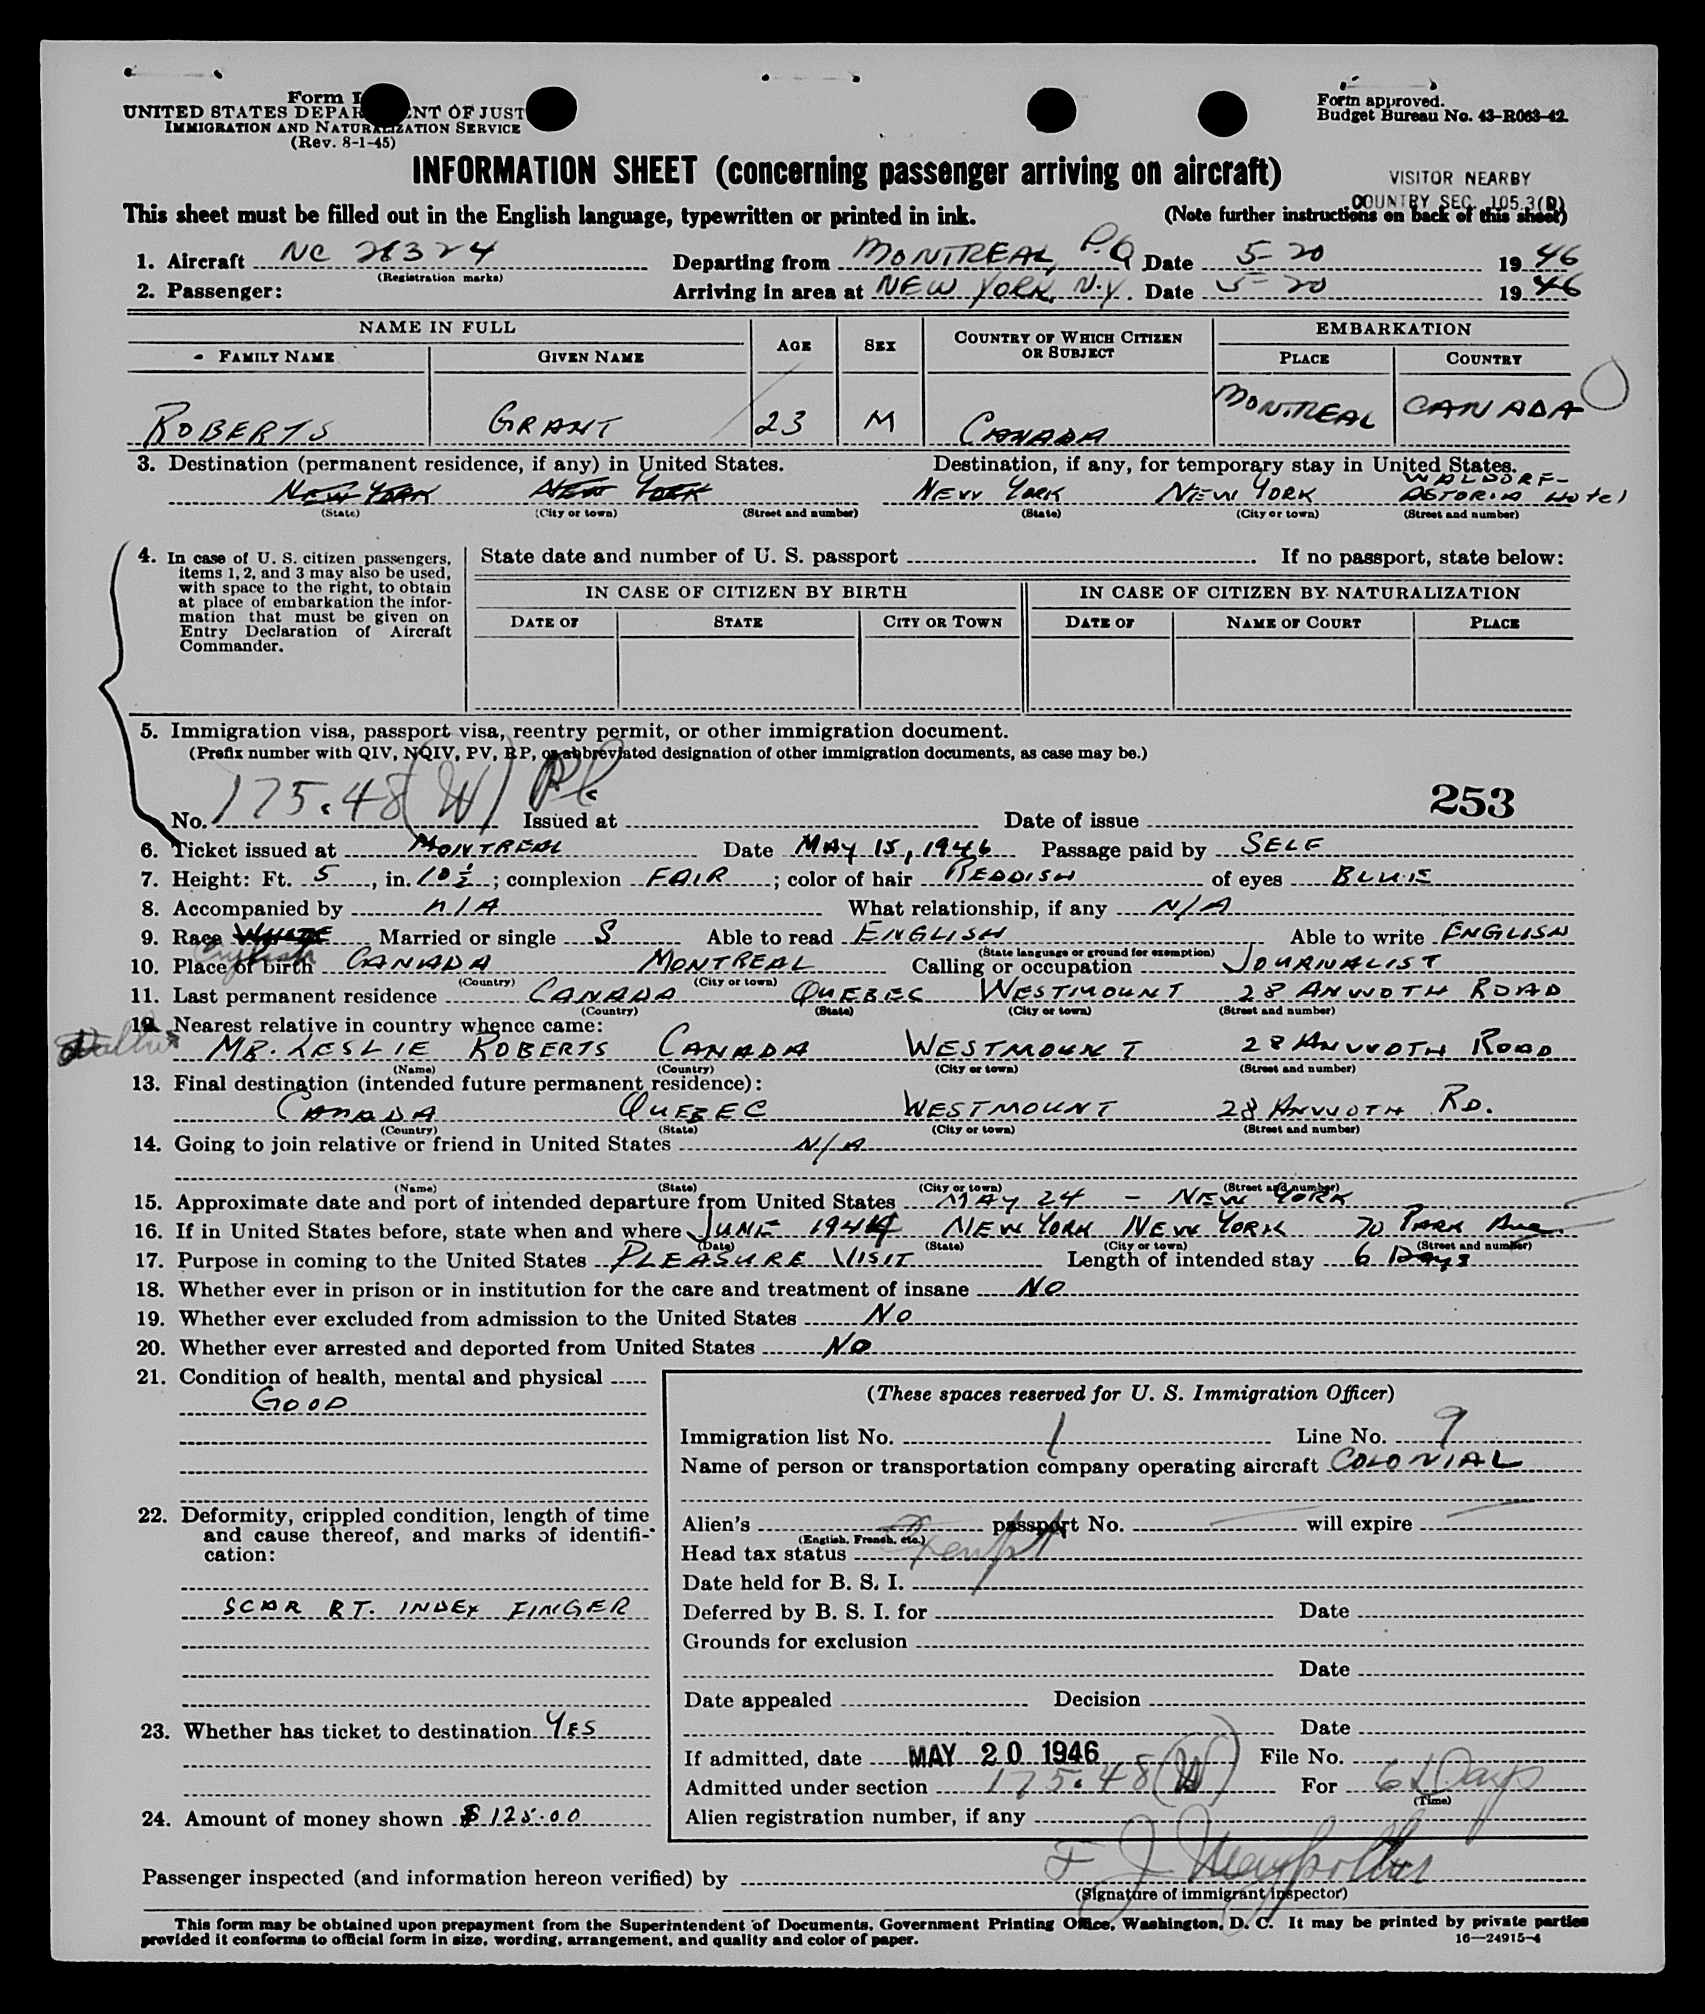 Form I
UNITED STATES DEPAR ENT OF JUST
IMMIGRATION AND NATURALIZATION SERVICE
(Rev. 8-1-45)
Form approved.
Budget Bureau No. 43-R063-42.
INFORMATION SHEET (concerning passenger arriving on aircraft)
VISITOR NEARBY
COUNTRY SEC. 105.3(B)
This sheet must be filled out in the English language, typewritten or printed in ink.
(Note further instructions on back of this sheet)
1. Aircraft NC 28324 Departing from MONTREAL, P.Q Date 5-20 1946
(Registration marks)
2. Passenger: Arriving in area at NEW YORK, N.Y. Date 5-20 1946
NAME IN FULL EMBARKATION
FAMILY NAME GIVEN NAME AGE SEX COUNTRY OF WHICH CITIZEN OR SUBJECT PLACE COUNTRY
ROBERTS GRANT 23 M CANADA MONTREAL CANADA
3. Destination (permanent residence, if any) in United States. Destination, if any, for temporary stay in United States.
NEW YORK NEW YORK NEW YORK NEW YORK WALDORF-ASTORIA Hotel
(State) (City or town) (Street and number) (State) (City or town) (Street and number)
4. In case of U. S. citizen passengers,
items 1, 2, and 3 may also be used,
with space to the right, to obtain
at place of embarkation the infor-
mation that must be given on
Entry Declaration of Aircraft
Commander.
State date and number of U. S. passport If no passport, state below:
IN CASE OF CITIZEN BY BIRTH IN CASE OF CITIZEN BY NATURALIZATION
DATE OF STATE CITY OR TOWN DATE OF NAME OF COURT PLACE
5. Immigration visa, passport visa, reentry permit, or other immigration document.
(Prefix number with QIV, NQIV, PV, RP, or abbreviated designation of other immigration documents, as case may be.)
253
No. 175.48(W) Issued at Date of issue
6. Ticket issued at MONTREAL Date MAY 15, 1946 Passage paid by SELF
7. Height: Ft. 5, in. 10½; complexion FAIR; color of hair REDDISH of eyes BLUE
8. Accompanied by N/A What relationship, if any N/A
9. Race WHITE Married or single S Able to read ENGLISH Able to write ENGLISH
English (State language or ground for exemption)
10. Place of birth CANADA MONTREAL Calling or occupation JOURNALIST
(Country) (City or town)
11. Last permanent residence CANADA QUEBEC WESTMOUNT 28 ANWOTH ROAD
(Country) (State) (City or town) (Street and number)
12. Nearest relative in country whence came:
Father MR. LESLIE ROBERTS CANADA WESTMOUNT 28 ANWOTH ROAD
(Name) (Country) (City or town) (Street and number)
13. Final destination (intended future permanent residence):
CANADA QUEBEC WESTMOUNT 28 ANWOTH RD.
(Country) (State) (City or town) (Street and number)
14. Going to join relative or friend in United States N/A
(Name) (State) (City or town) (Street and number)
15. Approximate date and port of intended departure from United States MAY 24 - NEW YORK
16. If in United States before, state when and where JUNE 1944 NEW YORK NEW YORK 70 PARK Ave.
(Date) (State) (City or town) (Street and number)
17. Purpose in coming to the United States PLEASURE VISIT Length of intended stay 6 Days
18. Whether ever in prison or in institution for the care and treatment of insane NO
19. Whether ever excluded from admission to the United States NO
20. Whether ever arrested and deported from United States NO
21. Condition of health, mental and physical
GOOD
22. Deformity, crippled condition, length of time
and cause thereof, and marks of identifi-
cation:
SCAR RT. INDEX FINGER
23. Whether has ticket to destination YES
24. Amount of money shown $125.00
(These spaces reserved for U. S. Immigration Officer)
Immigration list No. 1 Line No. 9
Name of person or transportation company operating aircraft COLONIAL
Alien's passport No. will expire
(English, French, etc.)
Head tax status Exempt
Date held for B. S. I.
Deferred by B. S. I. for Date
Grounds for exclusion
Date
Date appealed Decision
Date
If admitted, date MAY 20 1946 File No.
Admitted under section 175.48(W) For 6 Days
(Time)
Alien registration number, if any
Passenger inspected (and information hereon verified) by F J
(Signature of immigrant inspector)
This form may be obtained upon prepayment from the Superintendent of Documents, Government Printing Office, Washington, D. C. It may be printed by private parties
provided it conforms to official form in size, wording, arrangement, and quality and color of paper.
16—24915-4